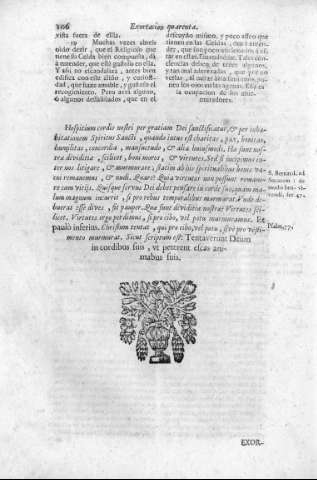 106 Exortacion quarenta.
vista fuera de ella.
19 Muchas vezes aveis
oìdo dezir, que el Religioso que
tiene su Celda bien compuesta, dà
à entender, que està gustoso en ella.
Y assi no escandaliza, antes bien
edifica con este aliño, y curiosi-
dad, que haze amable, y gustoso el
recogimiento. Pero avrà alguno,
ò algunos desaliñados, que en el
descuydo mismo, y poco asseo que
tienen en las Celdas, dàn à enten-
der,
la ocupacion de los mur-
muradores.
Hospitium cordis nostri per gratiam Dei sanctificatur, & per inha-
bitationem Spiritus Sancti, quando intus est charitas, pax, bonitas,
humilitas, concordia, mansuetudo, & alia huiusmodi. Hæ sunt nos-
træ divitiæ, scilicet, boni mores, & virtutes. Sed si incipimus in-
ter nos litigare, & murmurare, statim ab his spiritualibus bonis va-
cui remanemus, & nudi. Quare? Quia virtutes non possunt remane-
re cum vitijs. Quisque servus Dei debet pensare in corde suo, quam ma-
lum magnum incurrit, si pro rebus temporalibus murmurat. Unde de-
buerat esse dives, fit pauper. Quæ sunt divitiæ nostræ? Virtutes sci-
licet. Virtutes ergo perdimus, si pro cibo, vel potu murmuramus. Et
paulò inferius. Christum tentat, qui pro cibo, vel potu, sivè pro vesti-
mento murmurat. Sicut scriptum est: Tentaverunt Deum
in cordibus suis, vt peterent escas ani-
mabus suis.
S. Bernard. ad
Sororem l. de
modo benè vi-
vendi, ser. 47.
Psalm. 77.
EXOR-